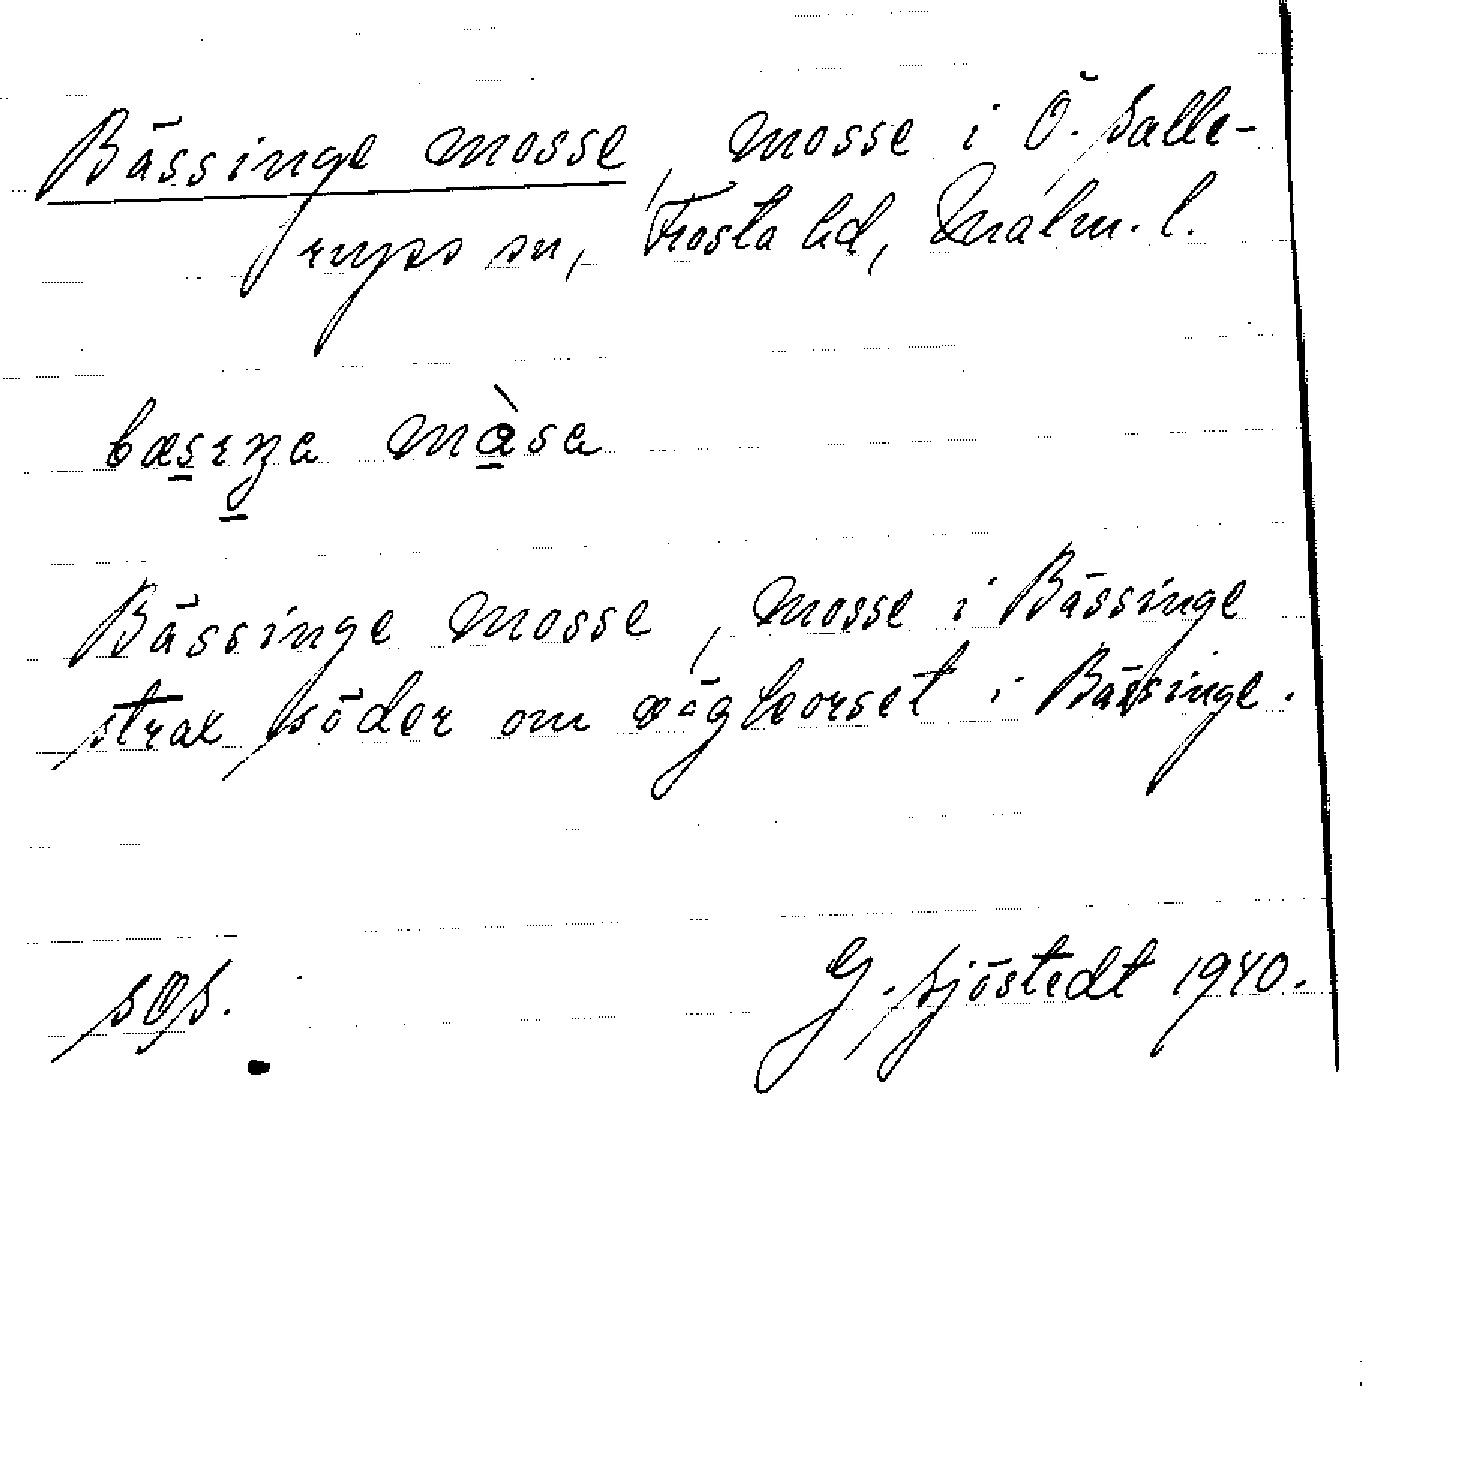 Bässinge mosse, mosse i Ö. Salle-
rups sn, Frosta hd, Malm. l.
bæsıŋa màsa
Bässinge mosse, mosse i Bässinge
strax söder om vägkorset i Bässinge.
SOS.
G. Sjöstedt 1940.